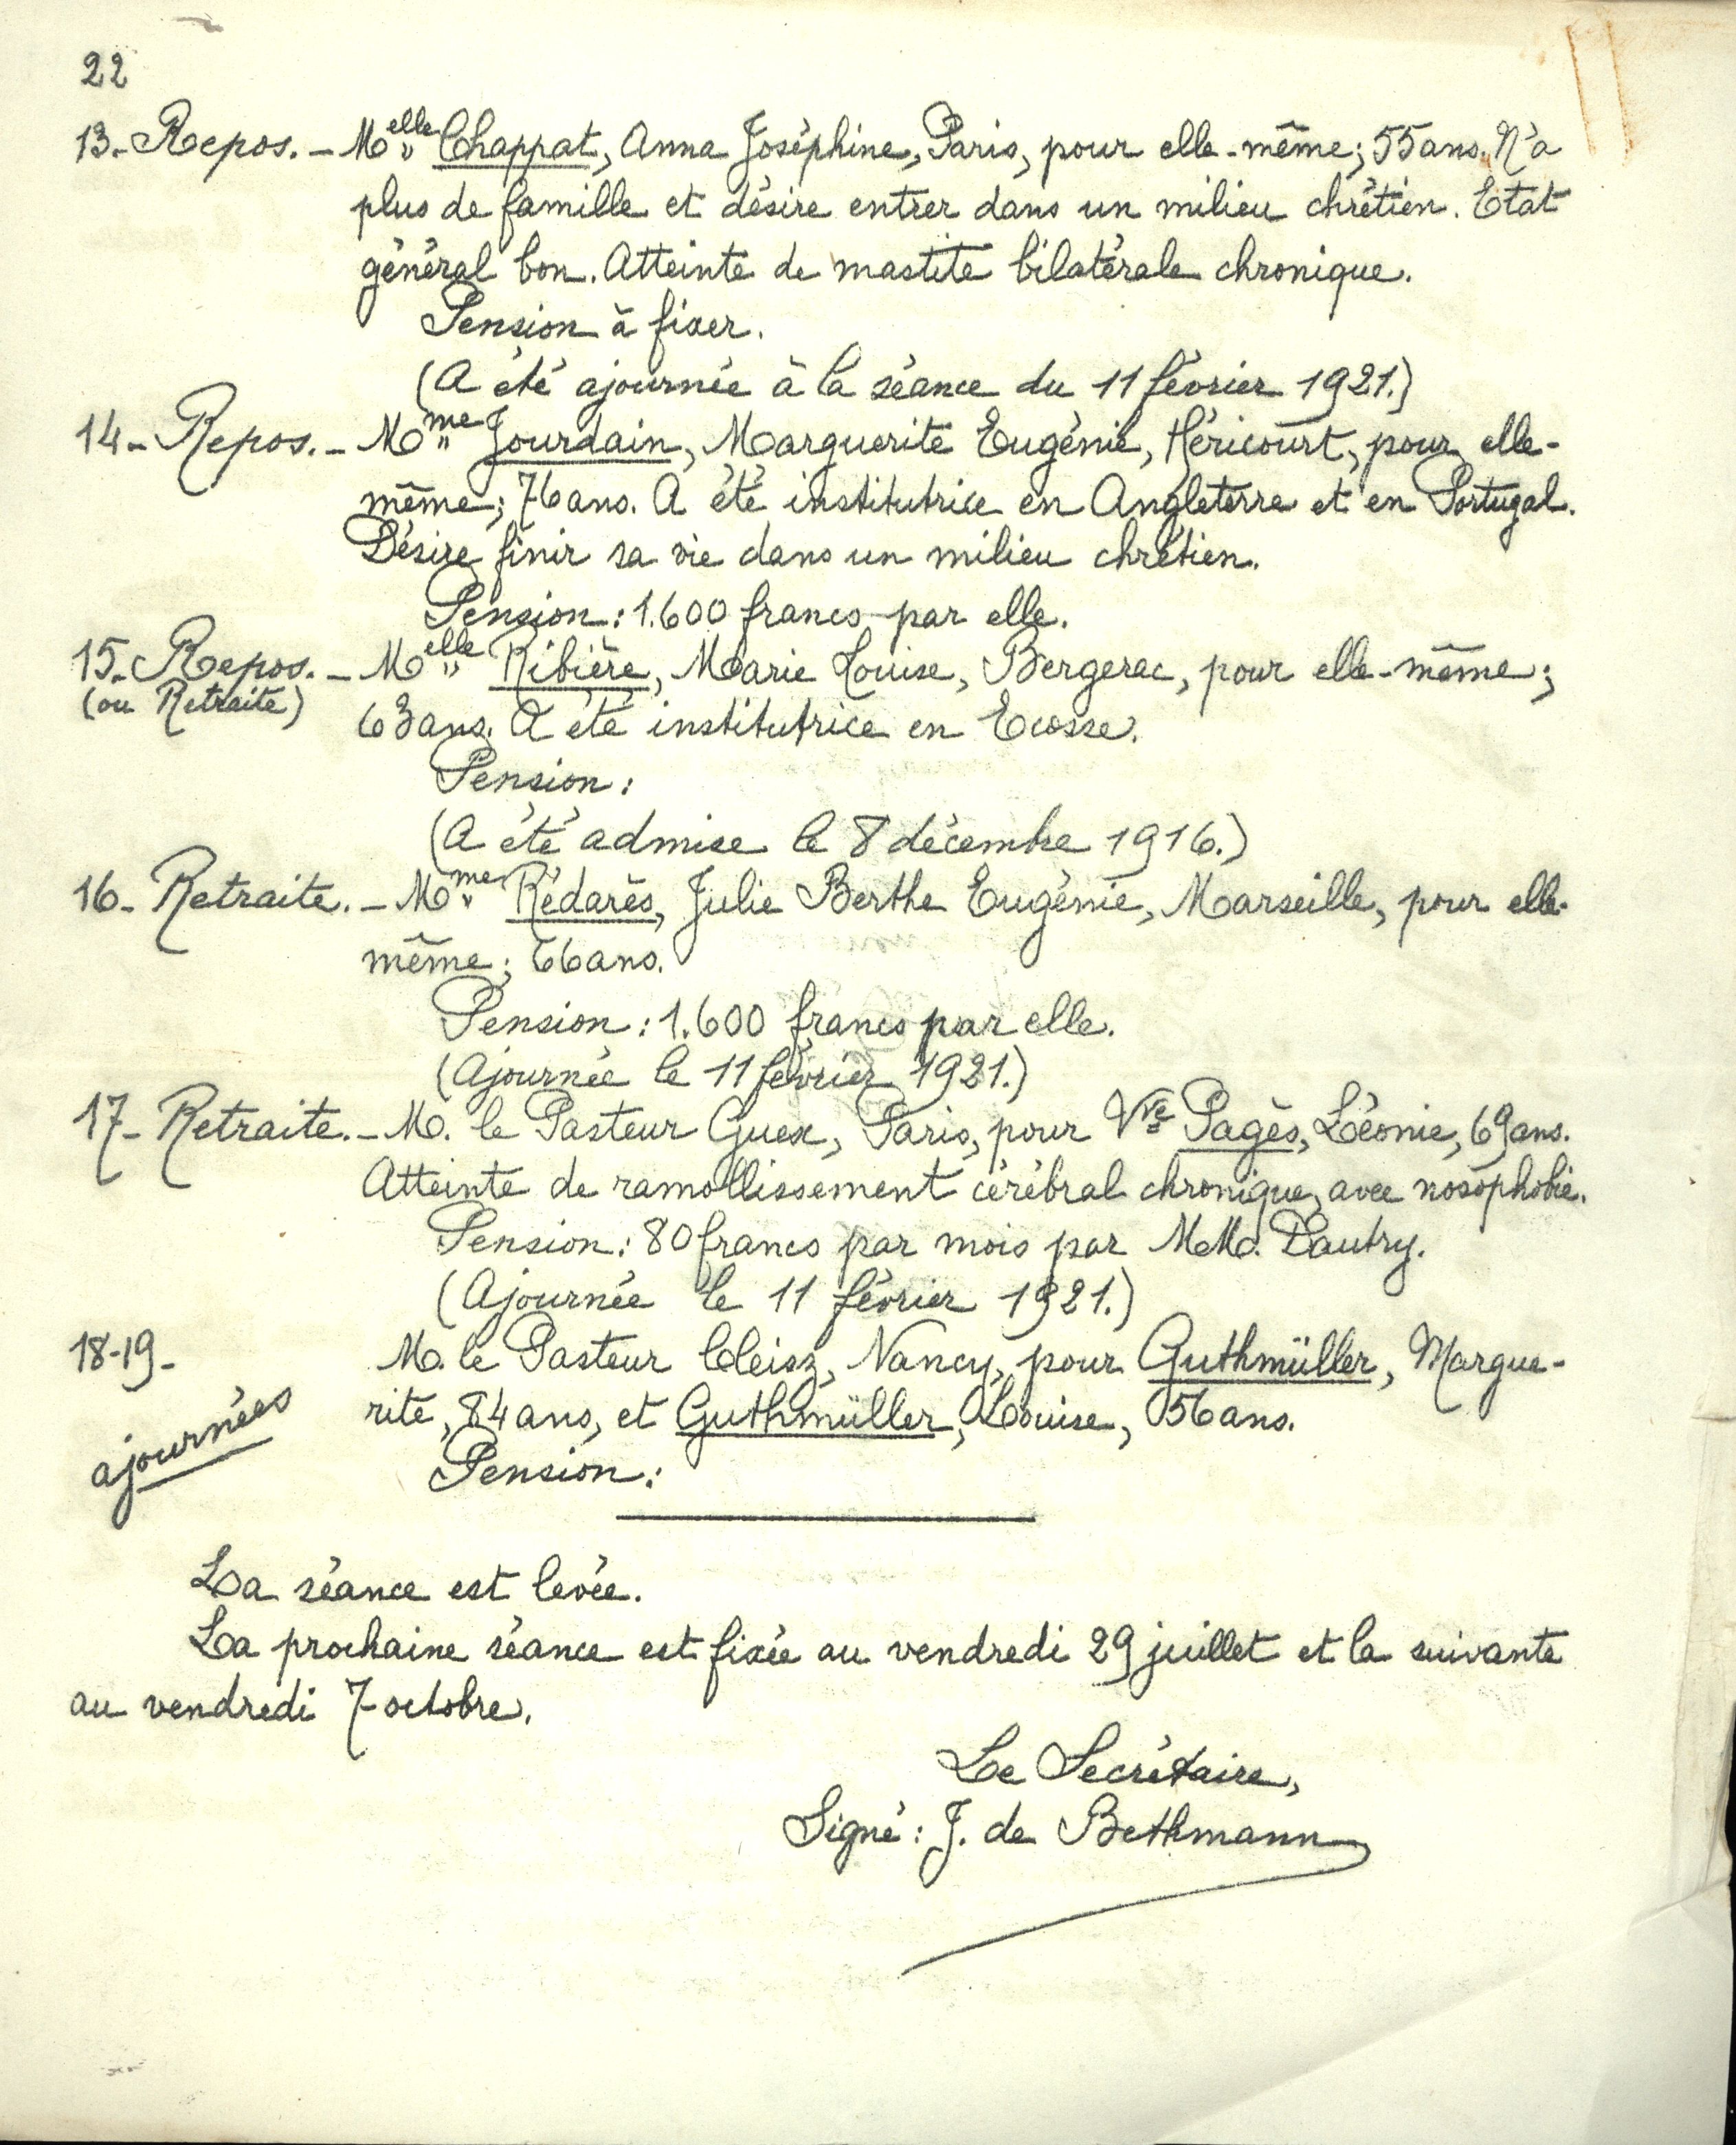 22
13 - Repos. - Melle Chappat, Anna Joséphine, Paris, pour elle-même; 55 ans. N'a
plus de famille et désire entrer dans un milieu chrétien. Etat
général bon. Atteinte de mastite bilatérale chronique.
Pension à fixer.
(A été ajournée à la séance du 11 février 1921.)
14 - Repos. - Mme Jourdain, Marguerite Eugénie, Héricourt, pour elle-
même; 76 ans. A été institutrice en Angleterre et en Portugal.
Désire finir sa vie dans un milieu chrétien.
Pension: 1.600 francs par elle.
15 - Repos. - Melle Ribière, Marie Louise, Bergerac, pour elle-même;
(ou Retraite) 63 ans. A été institutrice en Ecosse.
Pension:
(A été admise le 8 décembre 1916.)
16 - Retraite. - Mme Rédarès, Julie Berthe Eugénie, Marseille, pour elle-
même; 66 ans.
Pension: 1.600 francs par elle.
(Ajournée le 11 février 1921.)
17 - Retraite. - M. le Pasteur Guex, Paris, pour Vve Pagès, Léonie, 69 ans.
Atteinte de ramollissement cérébral chronique, avec nosophobie.
Pension: 80 francs par mois par MM. Dautry.
(Ajournée le 11 février 1921.)
18-19 - M. le Pasteur Cleisz, Nancy, pour Guthmüller, Margue-
rite, 84 ans, et Guthmüller, Louise, 56 ans.
ajournées
Pension:
La séance est levée.
La prochaine séance est fixée au vendredi 29 juillet et la suivante
au vendredi 7 octobre.
Le Secrétaire,
Signé: J. de Bethmann